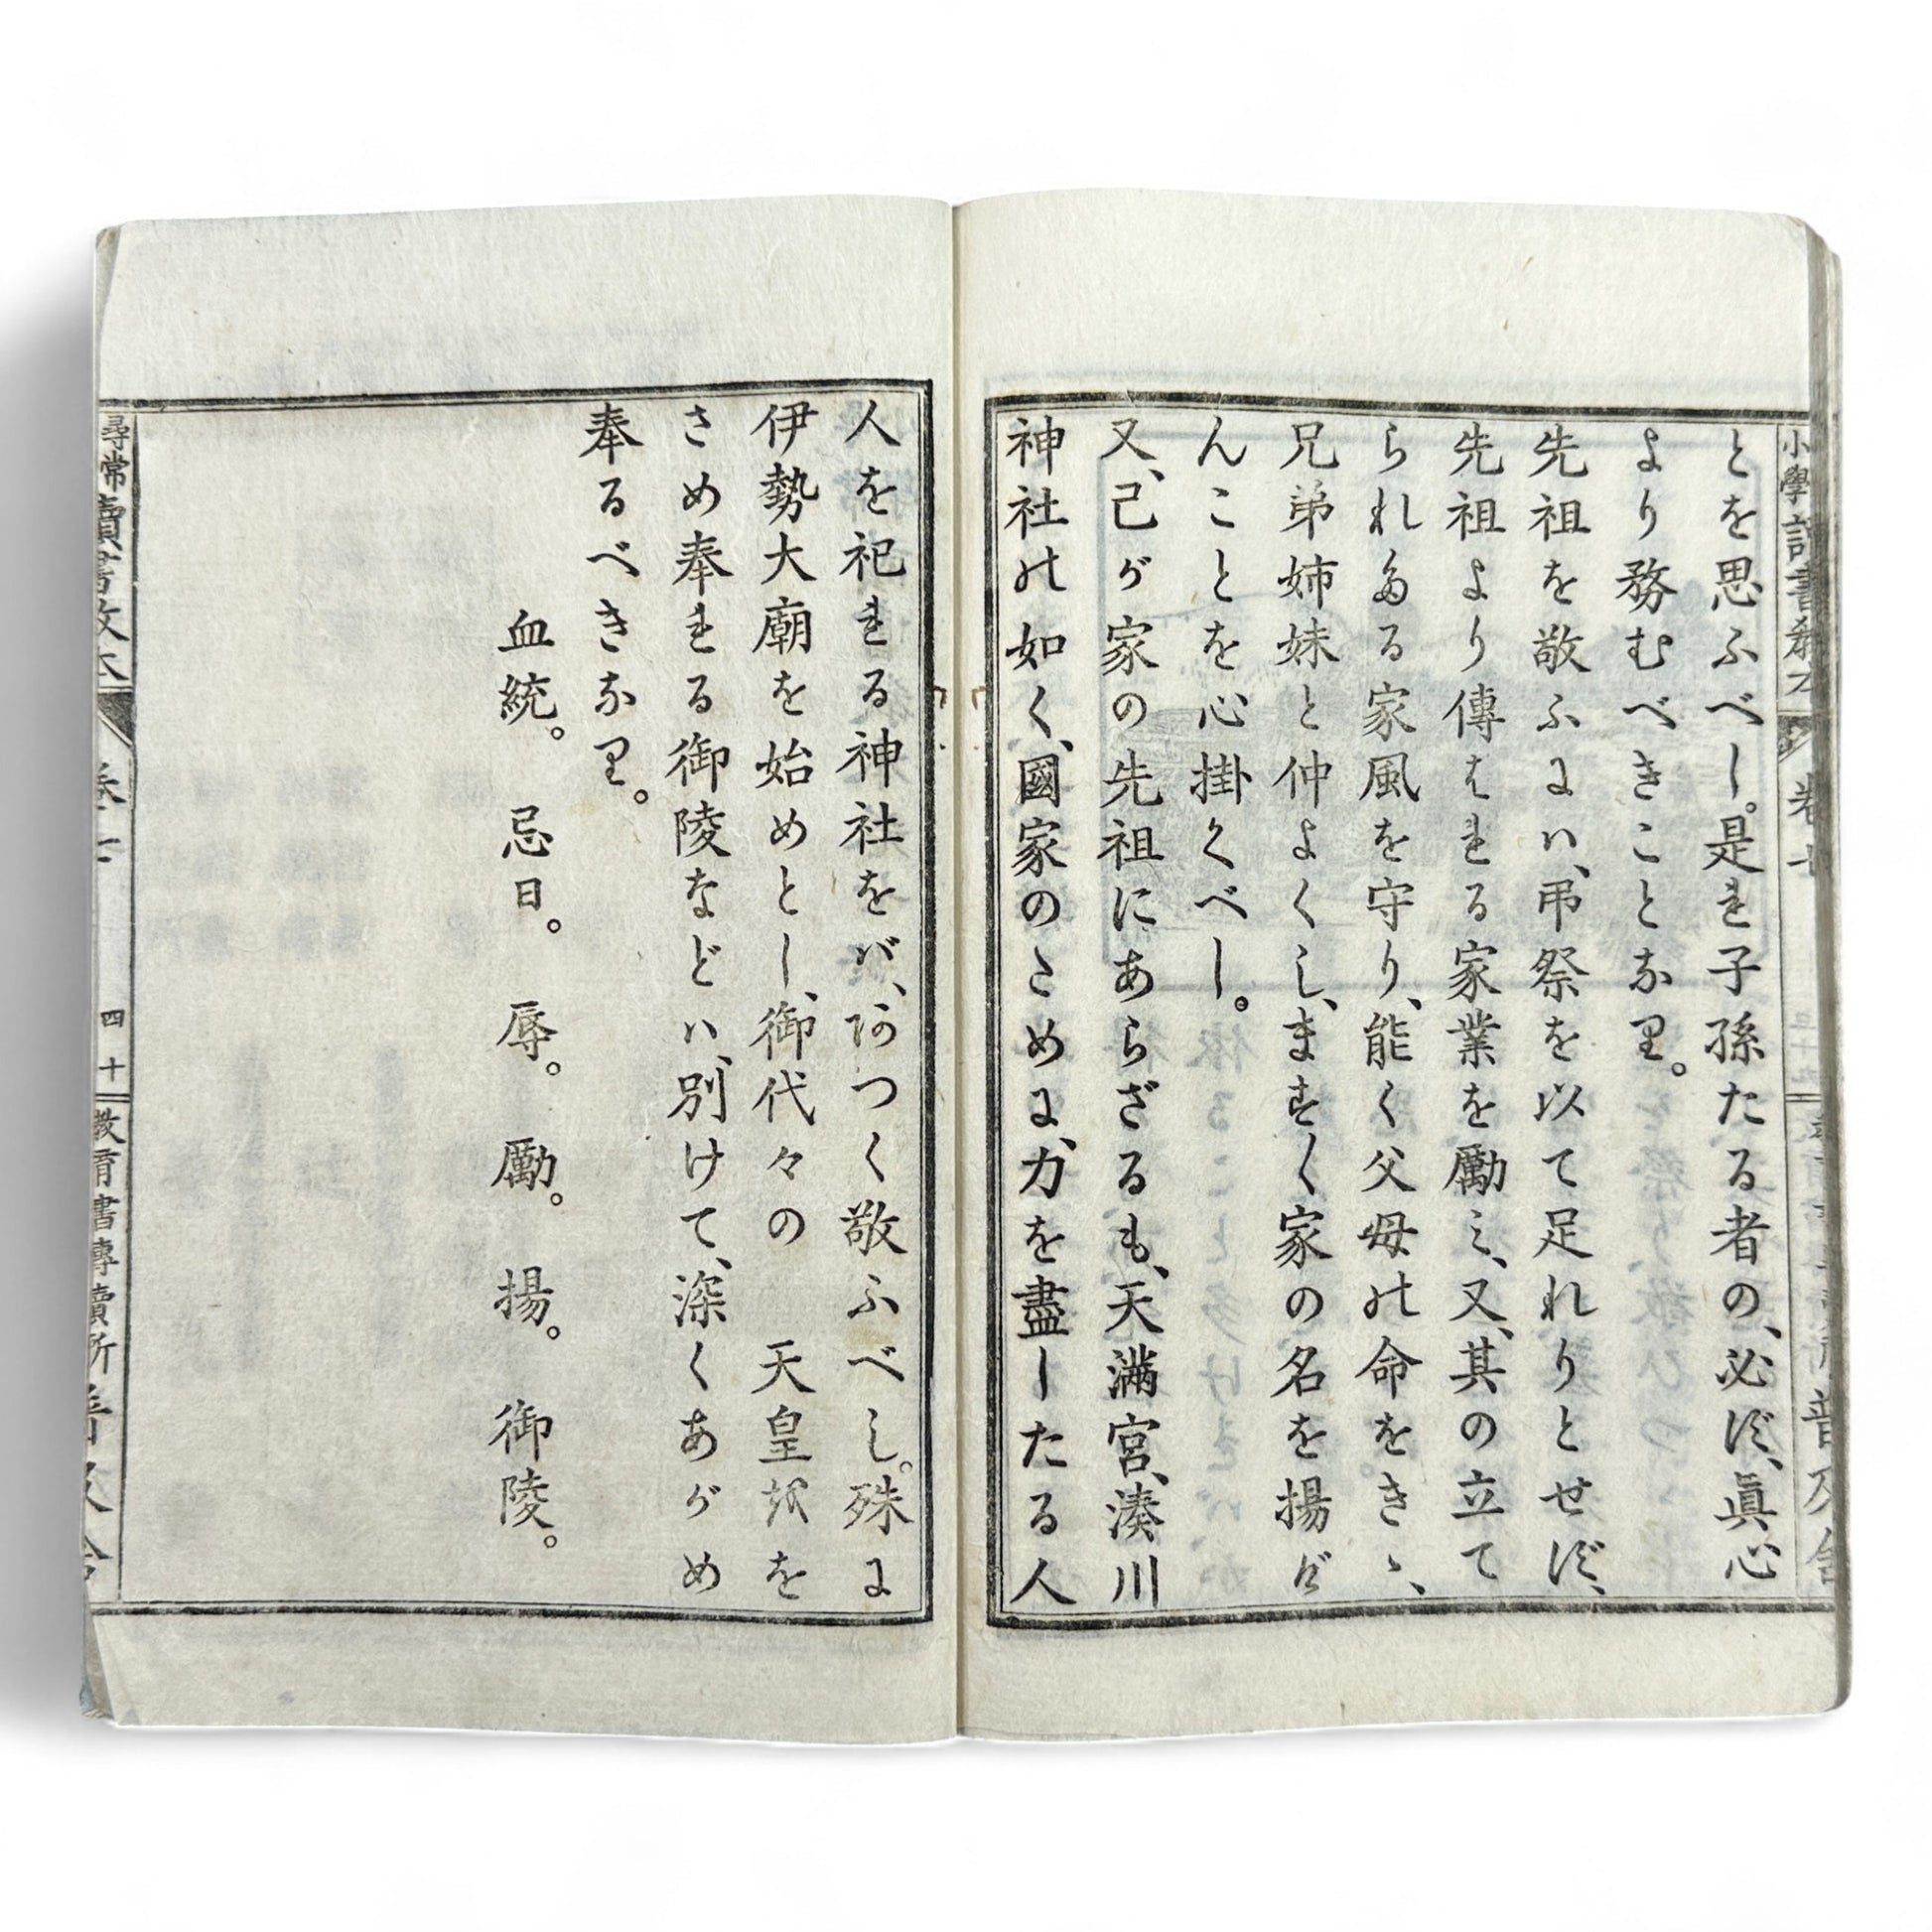 小學讀書教本 卷七 普及舎
とを思ふべし。是れ子孫たる者の、必ず、眞心
より務むべきことなり。
先祖を敬ふには、弔祭を以て足れりとせず、
先祖より傳はれる家業を勵み、又、其の立て
られたる家風を守り、能く父母の命をきゝ、
兄弟姉妹と仲よくし、ますく家の名を揚げ
んことを心掛くべし。
又、己が家の先祖にあらざるも、天滿宮、湊川
神社の如く、國家のために、力を盡したる人
人を祀れる神社をば、あつく敬ふべし。殊に
伊勢大廟を始めとし、御代々の 天皇をを
さめ奉れる御陵などは、別けて、深くあがめ
奉るべきなり。
血統。 忌日。 辱。 勵。 揚。 御陵。
尋常讀書教本 卷七 四十 教育書專賣所 普及舎